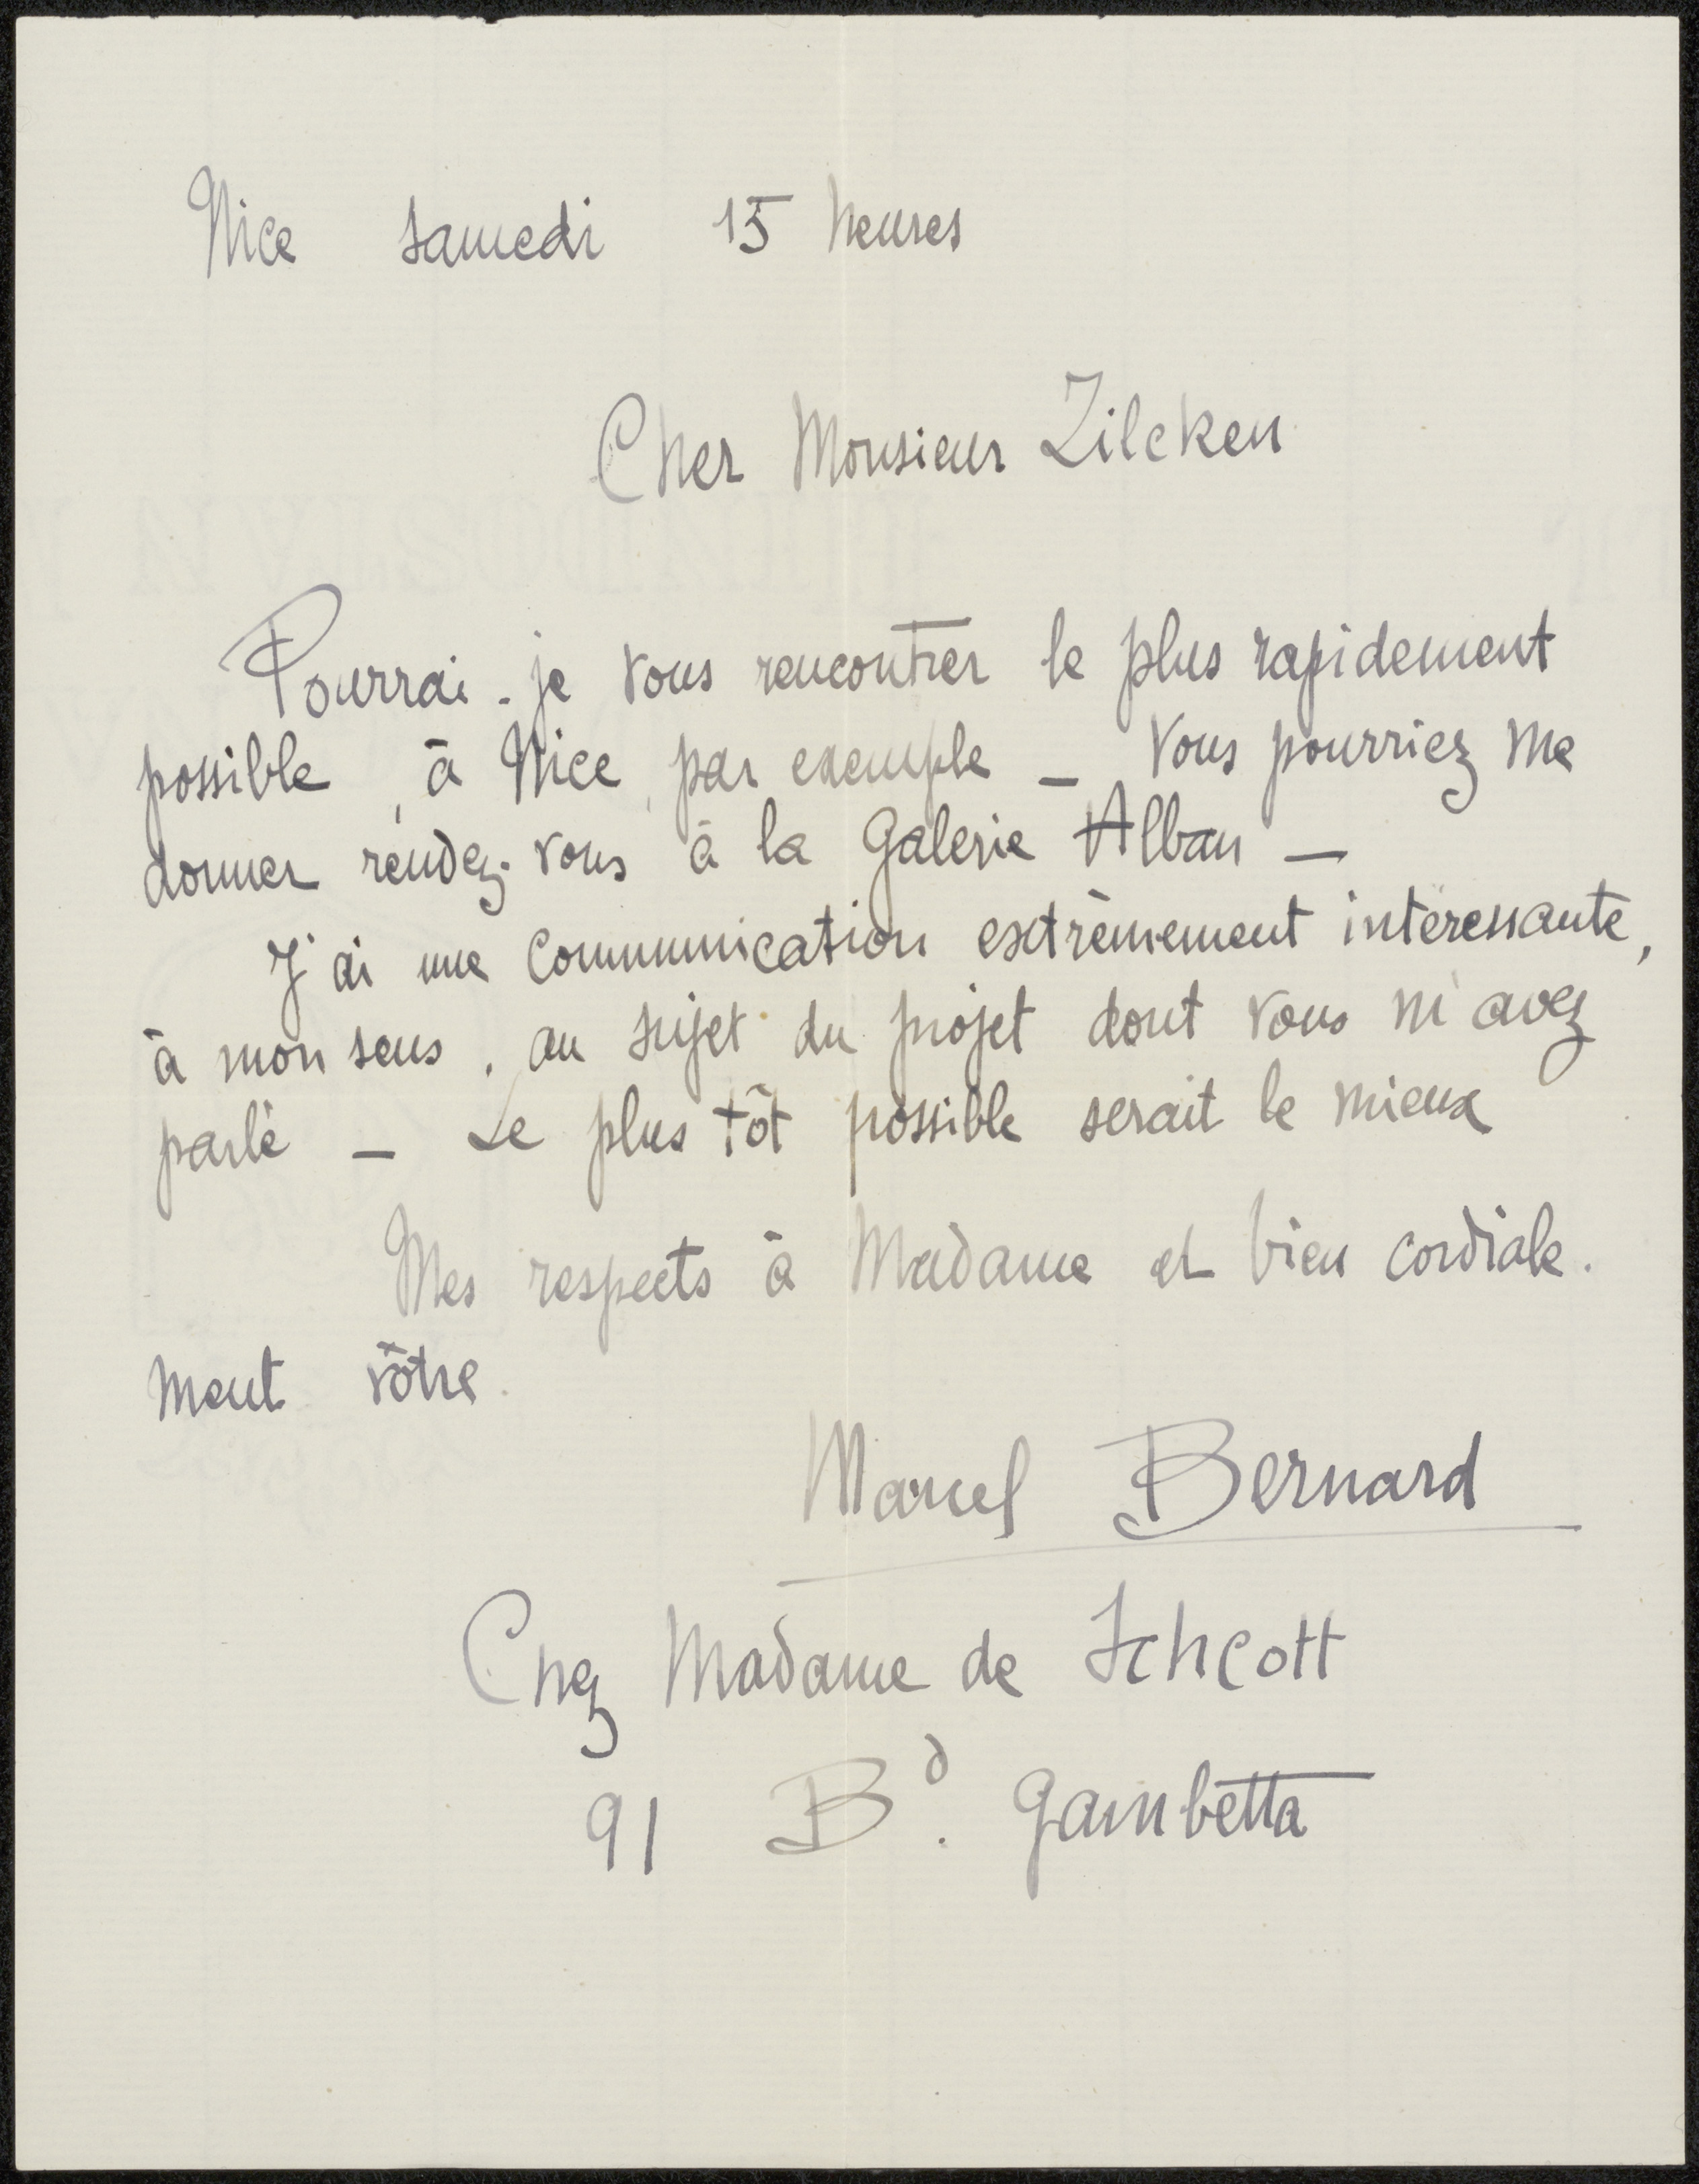 Nice samedi 15 heures
Cher Monsieur Zilcken
Pourrai-je vous rencontrer le plus rapidement
possible, à Nice, par exemple — Vous pourriez me
donner rendez-vous à la Galerie Alban —
J'ai une communication extrèmement intéressante,
à mon sens, au sujet du projet dont vous m'avez
parlé — Le plus tôt possible serait le mieux
Mes respects à Madame et bien cordiale-
ment vôtre.
Marcel Bernard
Chez Madame de Schcott
91 Bd. Gambetta